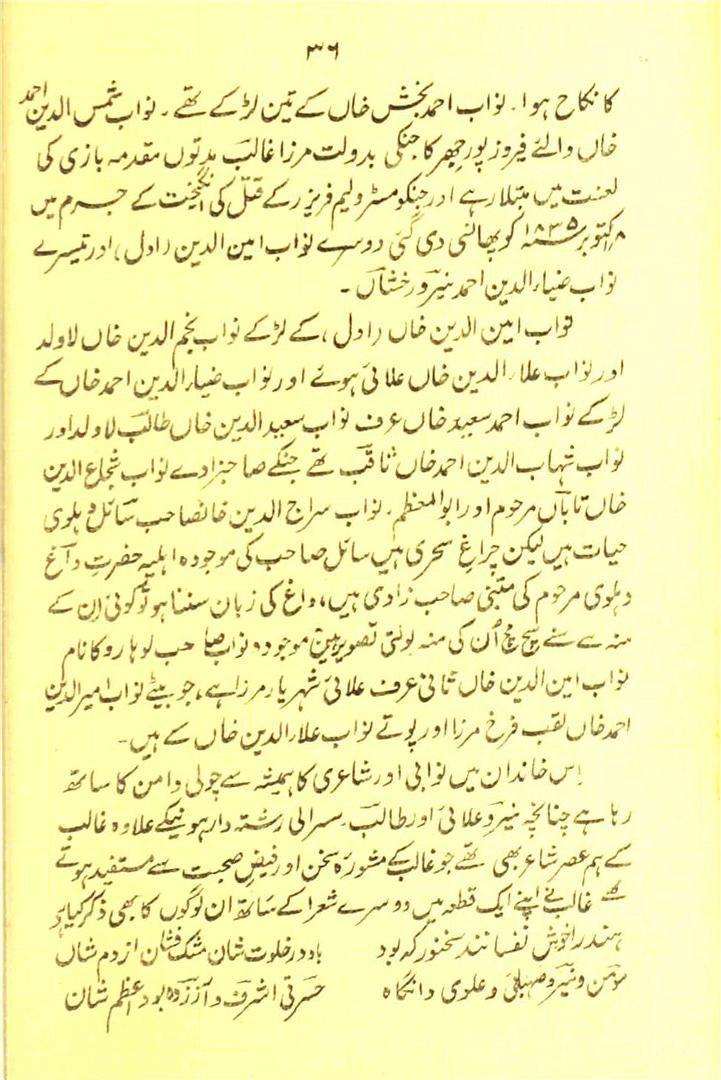 ۳۶
کا نکاح ہوا۔ نواب احمد بخش خاں کے تین لڑکے تھے۔ نواب شمس الدین احمد
خاں والئے فیروز پور جھرکا جنکی بدولت مرزا غالب مدتوں مقدمہ بازی کی
لعنت میں مبتلا رہے اور جنکو مسٹر ولیم فریزر کے قتل کی انگیخت کے جرم میں
۸ اکتوبر ۱۸۳۵ء کو پھانسی دی گئی دوسرے نواب امین الدین (اول) اور تیسرے
نواب ضیاء الدین احمد نیر و رخشاں۔
نواب امین الدین خاں (اول) کے لڑکے نواب نجم الدین خاں لاولد
اور نواب علاء الدین خاں علائی ہوئے اور نواب ضیاء الدین احمد خاں کے
لڑکے نواب احمد سعید خاں عرف نواب سعید الدین خاں طالب لاولد اور
نواب شہاب الدین احمد خاں ثاقب تھے جنکے صاحبزادے نواب شجاع الدین
خاں تاباں مرحوم اور ابو المعظم۔ نواب سراج الدین خانصاحب سائل دہلوی
حیات ہیں لیکن چراغِ سحری ہیں سائل صاحب کی موجودہ اہلیہ حضرتِ داغ
دہلوی مرحوم کی متبنی صاحب زادی ہیں، داغ کی زبان سننا ہو تو کوئی اِن کے
منہ سے سنے سچ مچ اُن کی منہ بولتی تصویر ہیں موجودہ نواب صاحب لوہارو کا نام
نواب امین الدین خاں ثانی عرف علائی شہریار مرزا ہے، جو بیٹے نواب امیر الدین
احمد خاں لقب فرخ مرزا اور پوتے نواب علاء الدین خاں کے ہیں۔
اِس خاندان میں نوابی اور شاعری کا ہمیشہ سے چولی دامن کا ساتھ
رہا ہے چنانچہ نیر و علائی اور طالب۔ سسرالی رشتہ دار ہونیکے علاوہ غالب
کے ہم عصر شاعر بھی تھے جو غالب کے مشورۂ سخن اور فیضِ صحبت سے مستفید ہوتے
تھے غالب نے اپنے ایک قطعہ میں دوسرے شعرا کے ساتھ ان لوگوں کا بھی ذکر کیا ہے
ہند را خوش نفسانند سخنور کہ بود باد در خلوت شان مشک فشان از دم شاں
مومن و نیر و صہبائی و علوی دانگاہ حسرتی اشرف و آزردہ بود اعظم شان